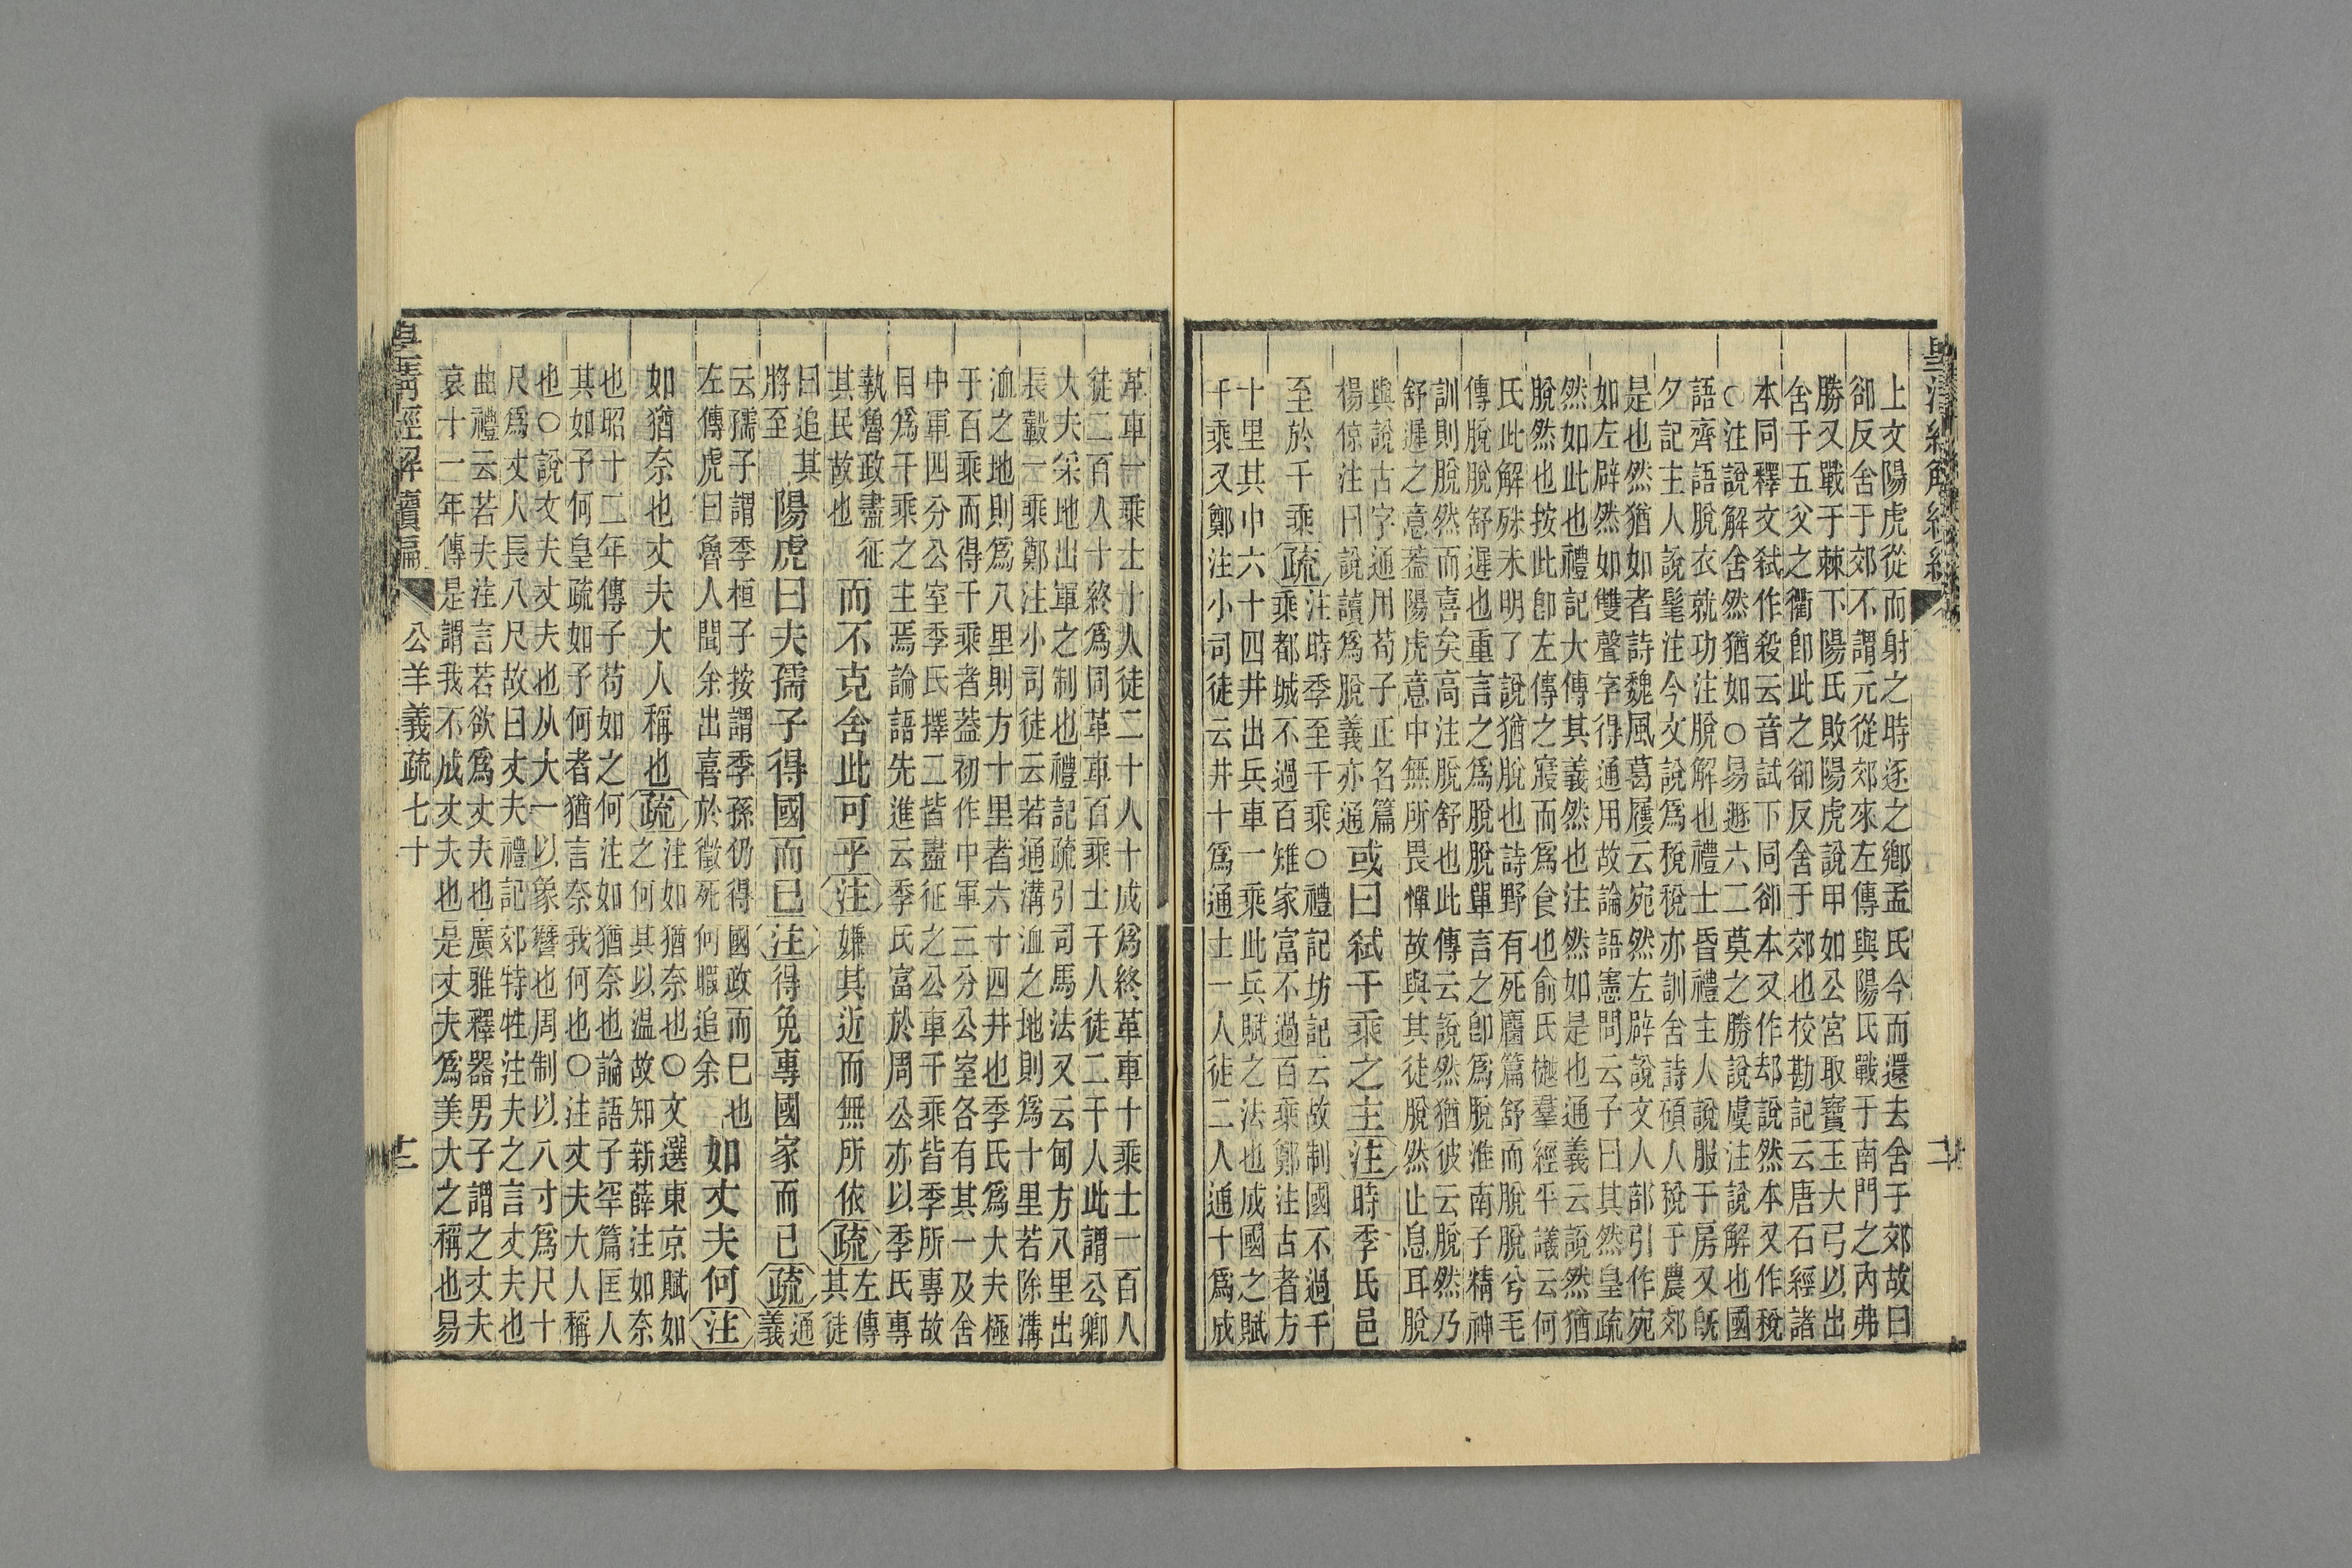 上文陽虎從而射之時逐之鄉孟氏今而還去舍于郊故曰
卻反舍于郊不謂元從郊來左傳與陽氏戰于南門之內弗
勝又戰于棘下陽氏敗陽虎說甲如公宮取寶玉大弓以出
舍于五父之衢卽此之卻反舍于郊也校勘記云唐石經諸
本同釋文弒作殺云音試下同卻本又作却說然本又作稅
○注說解舍然猶如○易遯六二莫之勝說虞注說解也國
語齊語脫衣就功注脫解也禮士昏禮主人說服于房又旣
夕記主人說髦注今文說爲稅稅亦訓舍詩碩人稅于農郊
是也然猶如者詩魏風葛屨云宛然左辟說文人部引作宛
如左辟然如雙聲字得通用故論語憲問云子曰其然皇疏
然如此也禮記大傳其義然也注然如是也通義云說然猶
脫然也按此卽左傳之寢而爲食也俞氏樾羣經平議云何
氏此解殊未明了說猶脫也詩野有死麕篇舒而脫脫兮毛
傳脫脫舒遲也重言之爲脫脫單言之卽爲脫淮南子精神
訓則脫然而喜矣高注脫舒也此傳云說然猶彼云脫然乃
舒遲之意葢陽虎意中無所畏憚故與其徒脫然止息耳脫
與說古字通用荀子正名篇
楊倞注曰說讀爲脫義亦通
或曰弒千乘之主注時季氏邑
至於千乘疏
注時季至千乘○禮記坊記云故制國不過千
乘都城不過百雉家富不過百乘鄭注古者方
十里其中六十四井出兵車一乘此兵賦之法也成國之賦
千乘又鄭注小司徒云井十爲通士一人徒二人通十爲成
革車一乘士十人徒二十人十成爲終革車十乘士一百人
徒二百人十終爲同革車百乘士千人徒二千人此謂公卿
大夫采地出軍之制也禮記疏引司馬法又云甸方八里出
長轂一乘鄭注小司徒云若通溝洫之地則爲十里若除溝
洫之地則爲八里則方十里者六十四井也季氏爲大夫極
于百乘而得千乘者葢初作中軍三分公室各有其一及舍
中軍四分公室季氏擇二皆盡征之公車千乘皆季所專故
目爲千乘之主焉論語先進云季氏富於周公亦以季氏專
執魯政盡征
其民故也
而不克舍此可乎注嫌其近而無所依疏
左傳
其徒
曰追其
將至
陽虎曰夫孺子得國而已注得免專國家而已疏
通
義
云孺子謂季桓子按謂季孫仍得國政而已也
左傳虎曰魯人聞余出喜於徵死何暇追余
如丈夫何注
如猶奈也丈夫大人稱也疏
注如猶奈也○文選東京賦如
之何其以温故知新薛注如奈
也昭十二年傳子苟如之何注如猶奈也論語子罕篇匡人
其如予何皇疏如予何者猶言奈我何也○注丈夫大人稱
也○說文夫丈夫也从大一以象簪也周制以八寸爲尺十
尺爲丈人長八尺故曰丈夫禮記郊特牲注夫之言丈夫也
曲禮云若夫注言若欲爲丈夫也廣雅釋器男子謂之丈夫
哀十一年傳是謂我不成丈夫也是丈夫爲美大之稱也易
皇淸經解續編
公羊義疏七十
十二